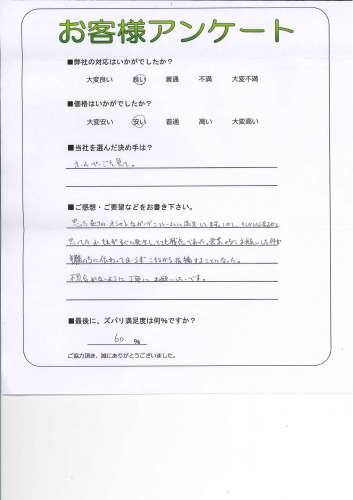 お客様アンケート
■弊社の対応はいかがでしたか?
大変良い 良い 普通 不満 大変不満
■価格はいかがでしたか?
大変安い 安い 普通 高い 大変高い
■当社を選んだ決め手は?
ホームページを見て。
■ご感想・ご要望などをお書き下さい。
思った通りのオシャレなガーデンルームに満足してます。しかし、
がすぐに発生し、とても残念であった。営業の方にお願いした件が
職人の方に伝わっておらずこちらから指摘することになった。
不具合がないように丁寧にお願いしたいです。
■最後に、ズバリ満足度は何%ですか?
60 %
ご協力頂き、誠にありがとうございました。